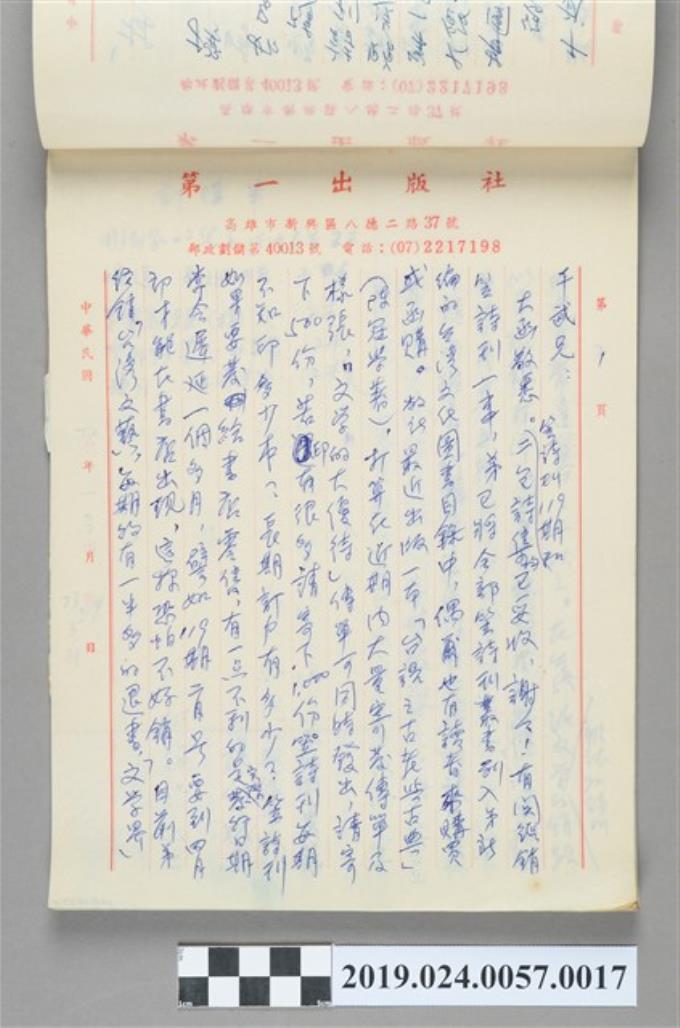 第一出版社
高雄市新興區八德二路37號
郵政劃儲第40013號 電話：(07)2217198
第 1 頁
千武兄：
大函敬悉。二包詩集已妥收，謝々！有關經銷
笠詩刊119期和
笠詩刊一事，弟已將全部笠詩刊叢書列入弟所
編的台灣文化圖書目錄中，偶爾也有讀者來購買
或函購。敝社最近出版一本「台語之古老與古典」
（陳冠學著），打算在近期內大量寄發傳單及
樣張，「文學的大優待」傳單可同時發出，請寄
下500份，若印有很多請寄下1,000份。笠詩刊每期
不知印多少本？長期訂戶有多少？笠詩刊
如果要發給書店零售，有一點不利的是發行日期
常會遲延一個多月，譬如119期二月号要到四月
初才能在書店出現，這樣恐怕不好銷。目前弟
經銷「台灣文藝」，每期約有一半多的退書，「文學界」
中華民國 年 月 日
2019.024.0057.0017